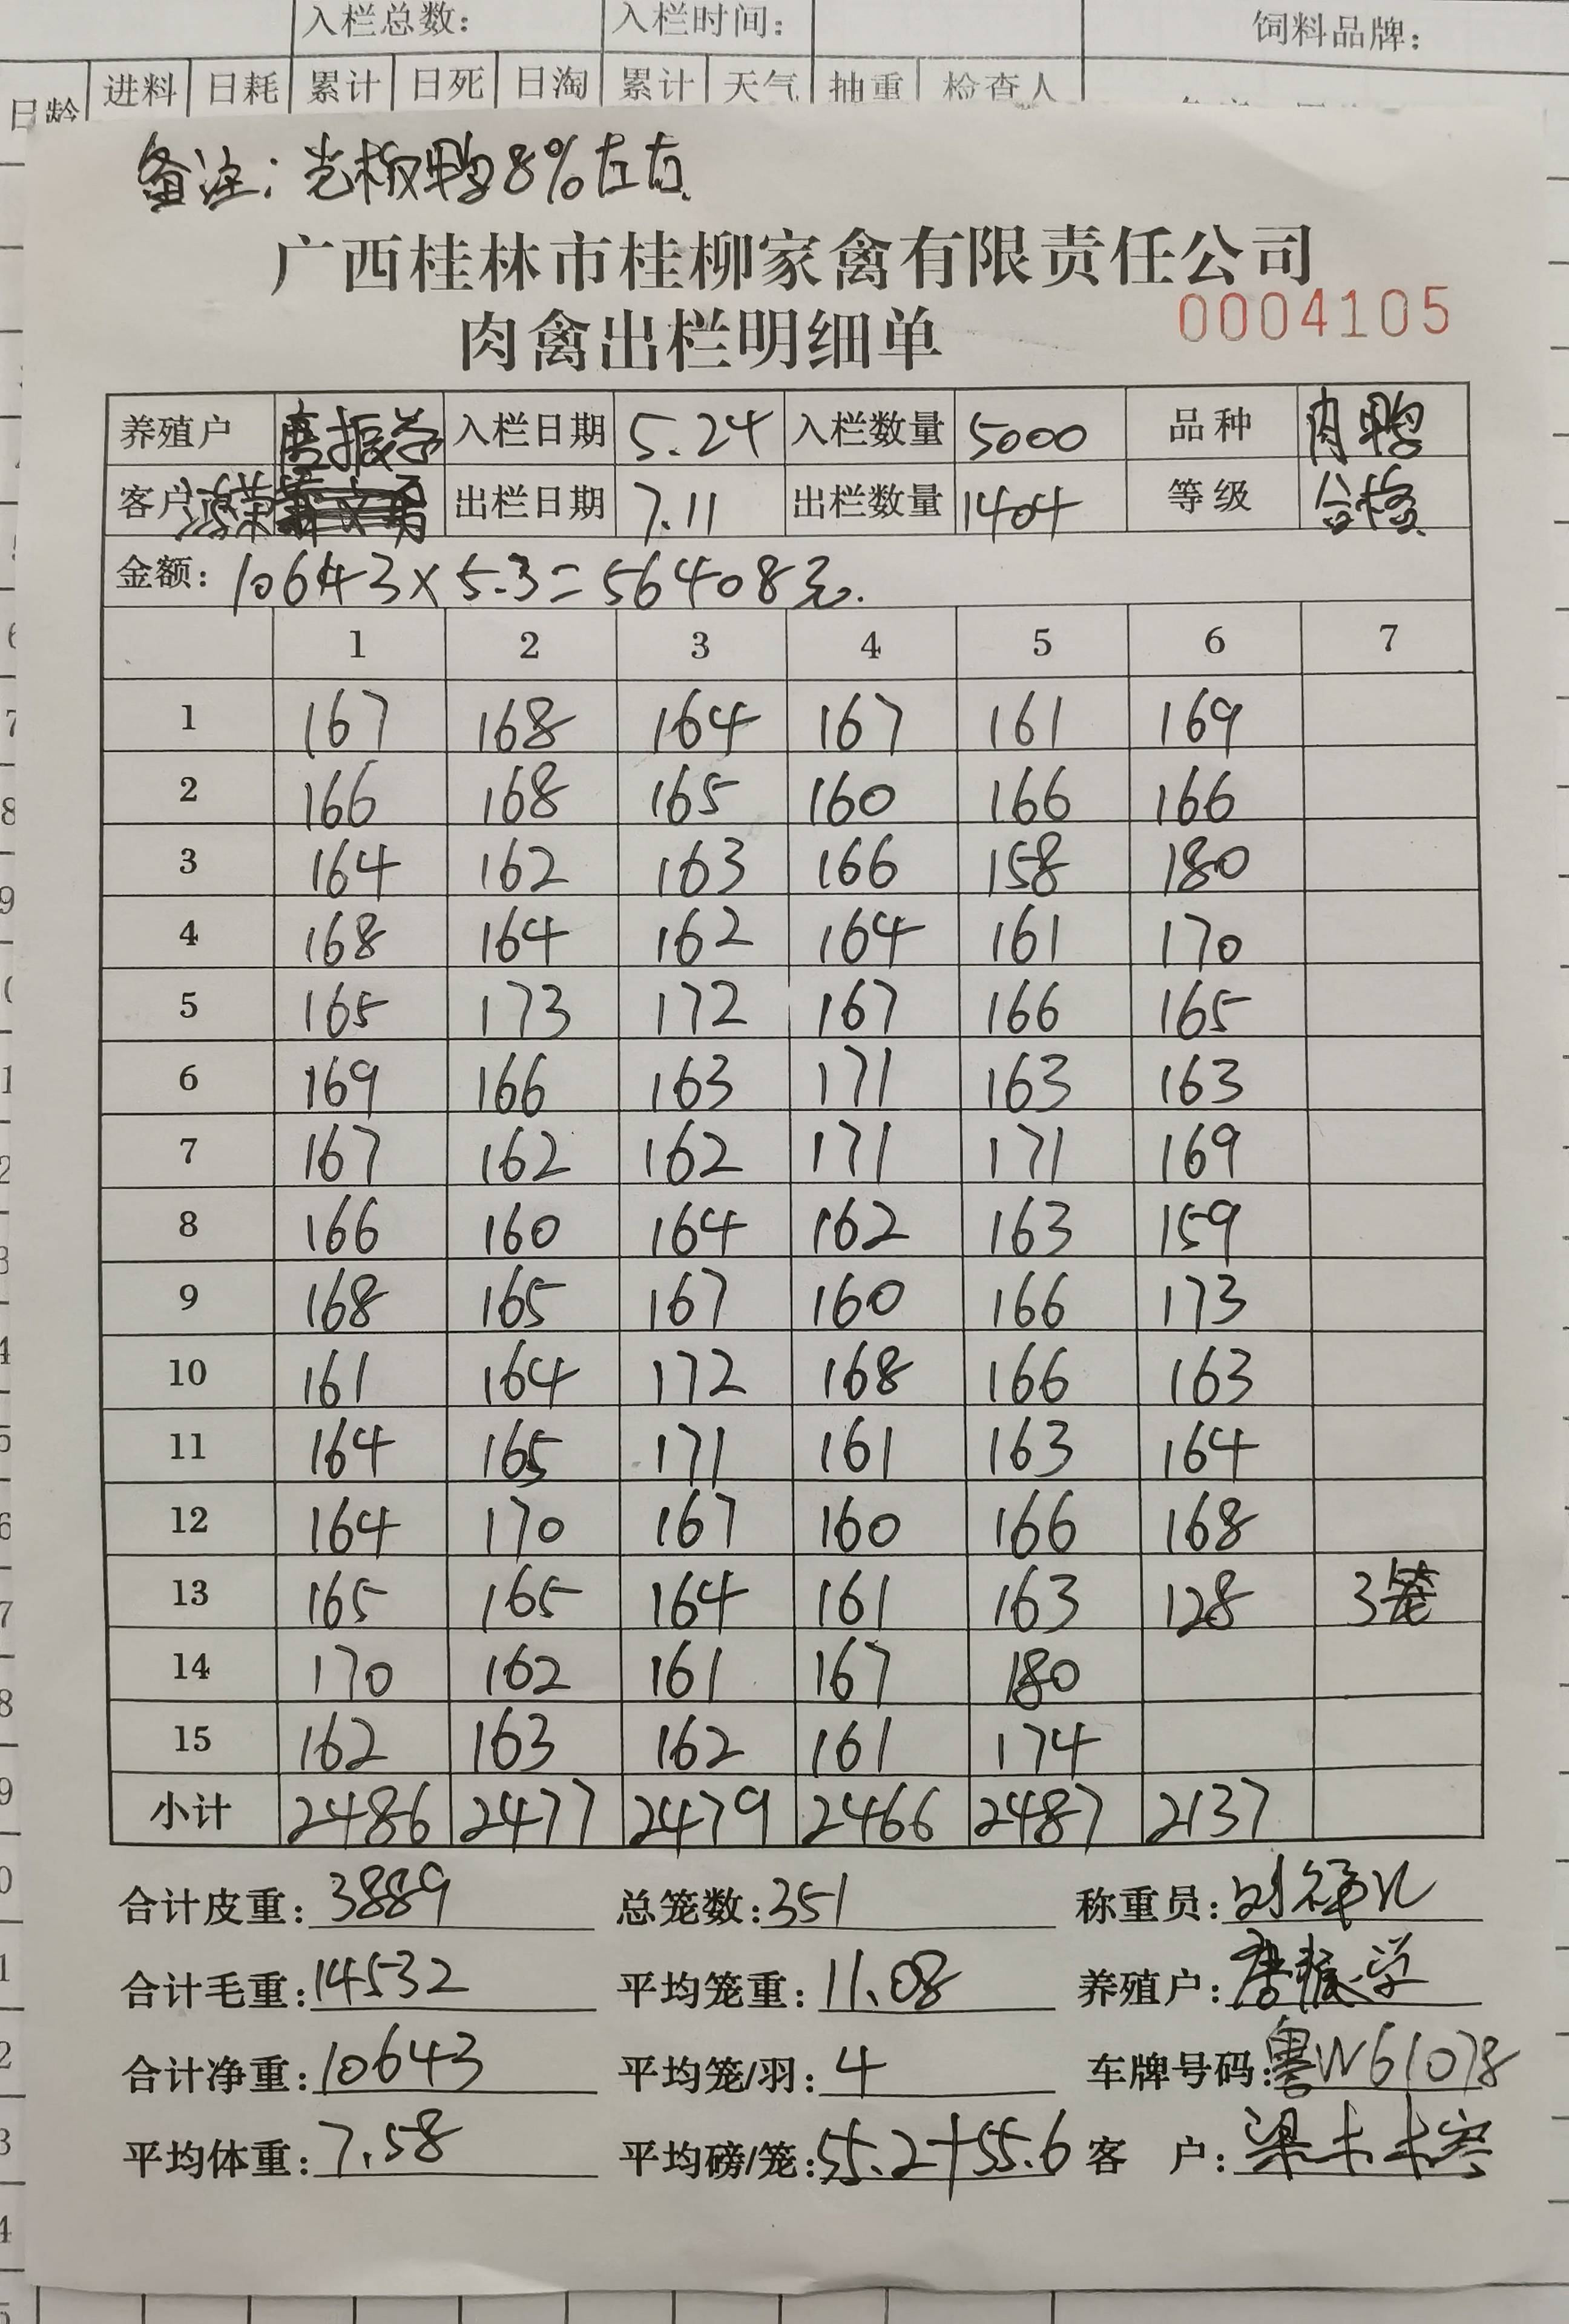 入栏总数: 入栏时间: 饲料品牌:
日龄 进料 日耗 累计 日死 日淘 累计 天气 抽重 检查人
备注: 光板鸭8%左右
广西桂林市桂柳家禽有限责任公司
肉禽出栏明细单 0004105
养殖户 唐振学 入栏日期 5.24 入栏数量 5000 品种 肉鸭
客户 出栏日期 7.11 出栏数量 1404 等级 合格
金额: 10643×5.3=56408元.
1 2 3 4 5 6 7
1 167 168 164 167 161 169
2 166 168 165 160 166 166
3 164 162 163 166 158 180
4 168 164 162 164 161 170
5 165 173 172 167 166 165
6 169 166 163 171 163 163
7 167 162 162 171 171 169
8 166 160 164 162 163 159
9 168 165 167 160 166 173
10 161 164 172 168 166 163
11 164 165 171 161 163 164
12 164 170 167 160 166 168
13 165 165 164 161 163 128 3笼
14 170 162 161 167 180
15 162 163 162 161 174
小计 2486 2477 2479 2466 2487 2137
合计皮重: 3889 总笼数: 351 称重员:
合计毛重: 14532 平均笼重: 11.08 养殖户: 唐振学
合计净重: 10643 平均笼/羽: 4 车牌号码: 粤W61078
平均体重: 7.58 平均磅/笼: 55.2+55.6 客 户: